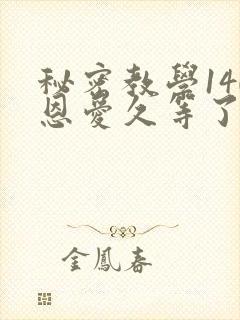 秘密教學14
恩愛久等了
金鳳春